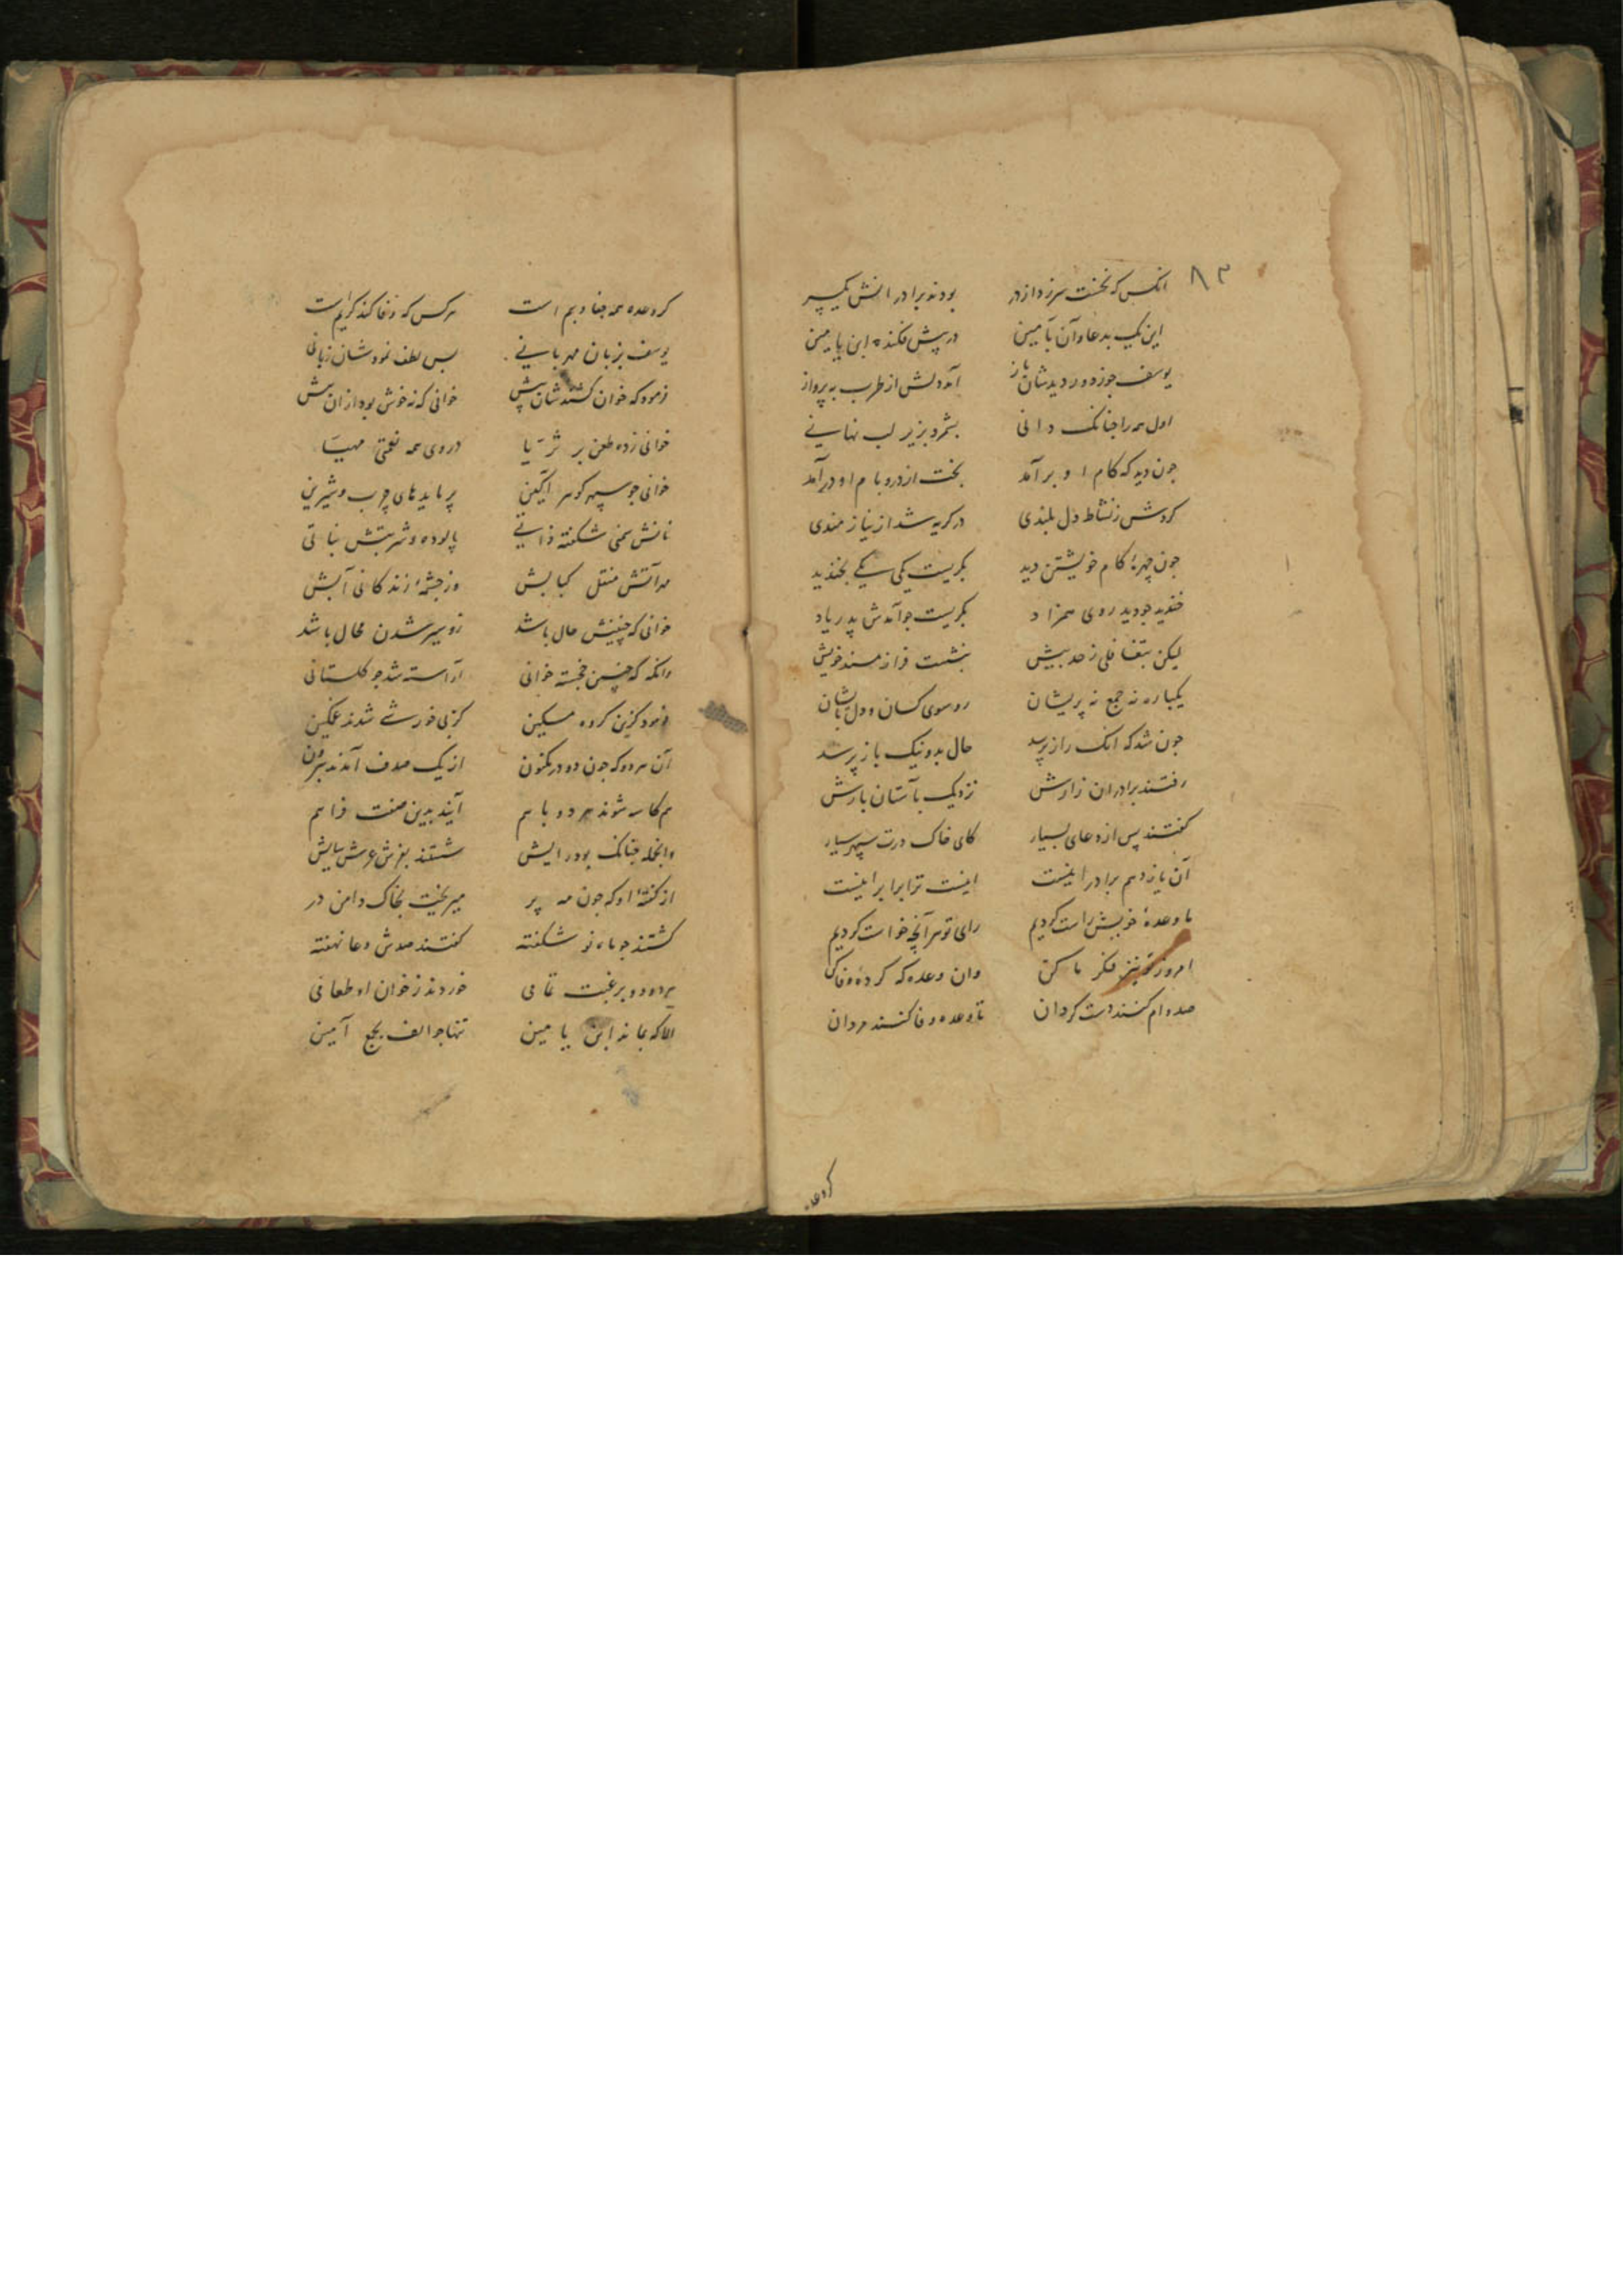 ۸۳
انکس که نخست سر زد از در بودند برادرانش یکسر
این یک بدعا و آن بآمین در پیش فکنده ابن یامین
یوسف چو ز دور دیدشان باز آمد دلش از طرب به پرواز
اول همه را چنانک دانی بشمرد بزیر لب نهانی
چون دید که کام او بر آمد بخت از در و بام او در آمد
کردش ز نشاط دل بلندی در کریه شد از نیازمندی
چون چهرهٔ کام خویشتن دید بکریست یکی یکی بخندید
خندید چو دید روی همزاد بکریست چو آمدش پدر یاد
لیکن بتغافلی ز حد بیش بنشست فراز مسند خویش
یکباره نه جمع نه پریشان رو سوی کسان و دل بایشان
چون شد که انک راز پرسد حال بد و نیک باز پرسد
رفتند برادران زارش نزدیک بآستان بارش
کفتند پس از دعای بسیار کای خاک درت سپهر سیار
آن یازدهم برادر اینست اینست ترا برابر اینست
ما وعدهٔ خویش راست کردیم رای تو هر آنچه خواست کردیم
امروز تو نیز فکر ما کن وان وعده که کرده وفا کن
صد وام کنند دست کردان تا وعده وفا کنند مردان
کر وعده
کر وعده همه جفا و بیم است هر کس که وفا کند کریم است
یوسف بزبان مهربانی بس لطف نمودشان زبانی
فرمود که خوان کشندشان پیش خوانی که نه خوش بود ازان بیش
خوانی زده طعن بر ثریا در وی همه نعمتی مهیا
خوانی چو سپهر کوهر آکین پر مایدهای چرب و شیرین
نانش سمنی شکفته ذاتی پالوده و شربتش نباتی
مه آتش منقل کبابش وز چشمهٔ زندکانی آبش
خوانی که چنینش حال باشد زو سیر شدن محال باشد
وانکه که چنین خجسته خوانی آراسته شد چو کلستانی
فرمود کزین کروه مسکین کز بی خورشی شدند غمکین
آن هر دو که چون دو در مکنون از یک صدف آمدند بیرون
هم کاسه شوند هر دو باهم آیند بدین صفت فراهم
وانجمله چنانک بود رایش شستند بفرش عرش سایش
از کفتهٔ او که چون مه پر میریخت بخاک دامن در
کشتند چو ماه نو شکفته کفتند صدش دعا نهفته
هر دو دو برغبت تمامی خوردند ز خوان او طعامی
الا که بماند ابن یامین تنها چو الف بجمع آمین